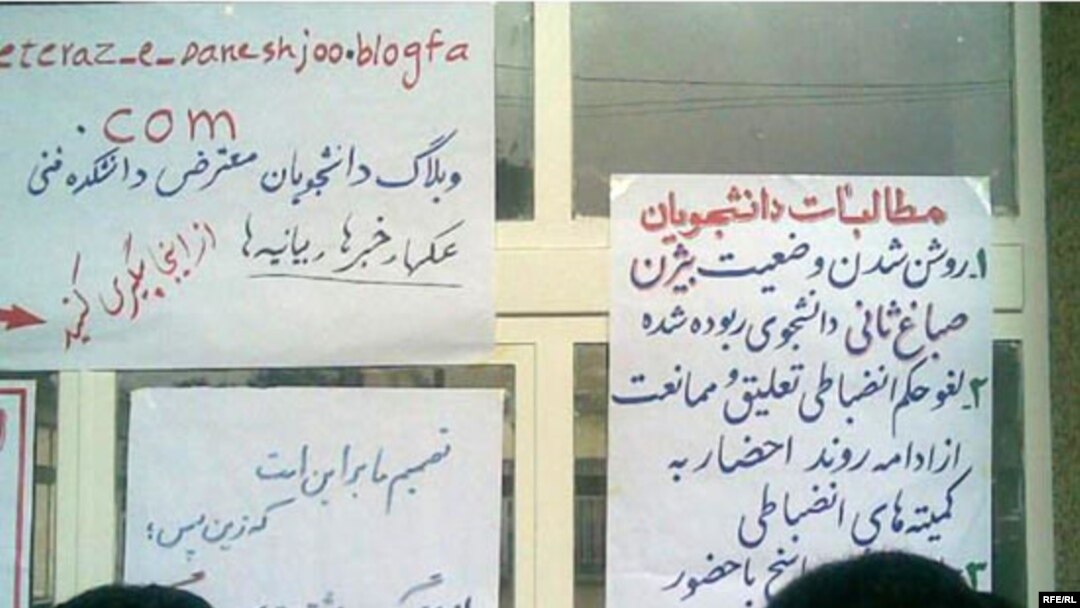 eteraz_e_daneshjoo.blogfa
.com
وبلاگ دانشجویان معترض دانشکده فنی
عکسها، خبرها، بیانیه ها
از اینجا پیگیری کنید
مطالبات دانشجویان
۱. روشن شدن وضعیت بیژن
صباغ ثانی دانشجوی ربوده شده
۲. لغو حکم انضباطی تعلیق و ممانعت
از ادامه روند احضار به
کمیته های انضباطی
۳
با حضور
تصمیم ما بر این است
که زین پس؛
RFE/RL